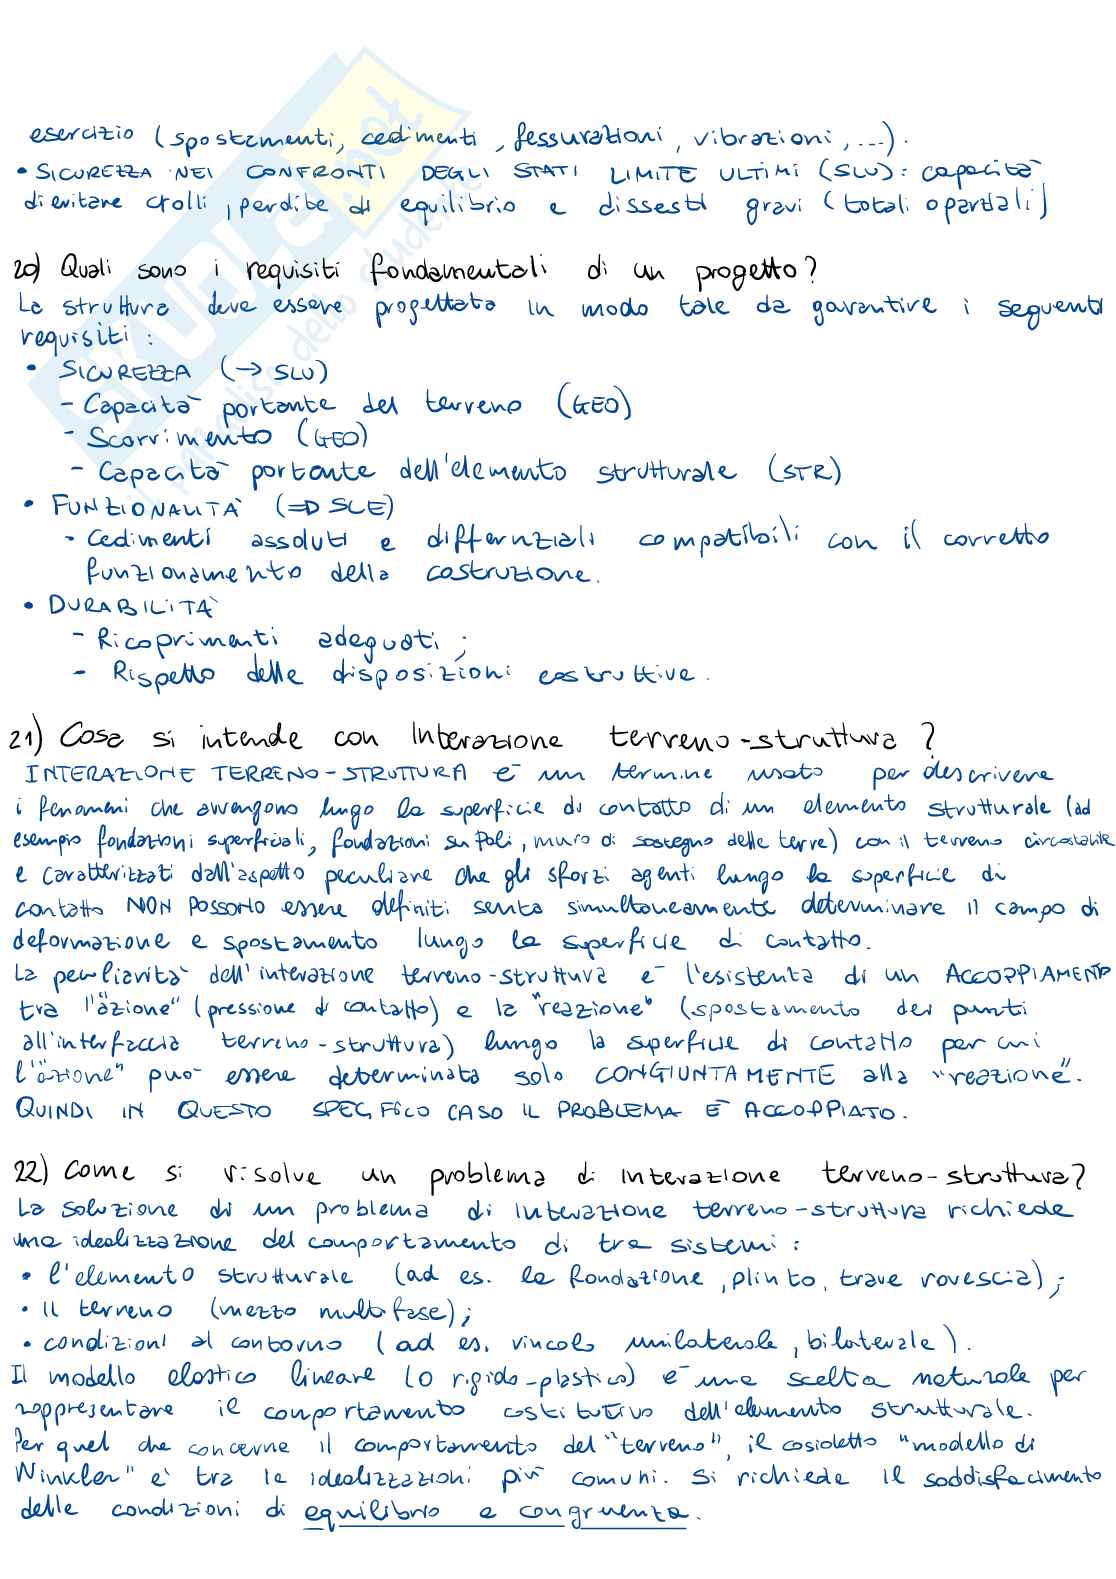 esercizio (spostamenti, cedimenti, fessurazioni, vibrazioni, ...).
• SICUREZZA NEI CONFRONTI DEGLI STATI LIMITE ULTIMI (SLU): capacità
di evitare crolli, perdite di equilibrio e dissesti gravi (totali o parziali)
20) Quali sono i requisiti fondamentali di un progetto?
La struttura deve essere progettata in modo tale da garantire i seguenti
requisiti:
• SICUREZZA (→ SLU)
- Capacità portante del terreno (GEO)
- Scorrimento (GEO)
- Capacità portante dell'elemento strutturale (STR)
• FUNZIONALITÀ (⇒ SLE)
- Cedimenti assoluti e differnziali compatibili con il corretto
funzionamento della costruzione.
• DURABILITÀ
- Ricoprimenti adeguati;
- Rispetto delle disposizioni costruttive.
21) Cosa si intende con Interazione terreno-struttura?
INTERAZIONE TERRENO-STRUTTURA è un termine usato per descrivere
i fenomeni che avvengono lungo la superficie di contatto di un elemento strutturale (ad
esempio fondazioni superficiali, fondazioni su pali, muro di sostegno delle terre) con il terreno circostante
e caratterizzati dall'aspetto peculiare che gli sforzi agenti lungo la superficie di
contatto NON POSSONO essere definiti senza simultaneamente determinare il campo di
deformazione e spostamento lungo la superficie di contatto.
La peculiarità dell'interazione terreno-struttura è l'esistenza di un ACCOPPIAMENTO
tra l'"azione" (pressione di contatto) e la "reazione" (spostamento dei punti
all'interfaccia terreno-struttura) lungo la superficie di contatto per cui
l'"azione" può essere determinata solo CONGIUNTAMENTE alla "reazione".
QUINDI IN QUESTO SPECIFICO CASO IL PROBLEMA È ACCOPPIATO.
22) Come si risolve un problema di interazione terreno-struttura?
La soluzione di un problema di interazione terreno-struttura richiede
una idealizzazione del comportamento di tre sistemi:
• l'elemento strutturale (ad es. la fondazione, plinto, trave rovescia);
• Il terreno (mezzo multifase);
• condizioni al contorno (ad es. vincolo unilaterale, bilaterale).
Il modello elastico lineare (o rigido-plastico) è una scelta naturale per
rappresentare il comportamento costitutivo dell'elemento strutturale.
Per quel che concerne il comportamento del "terreno", il cosiddetto "modello di
Winkler" è tra le idealizzazioni più comuni. Si richiede il soddisfacimento
delle condizioni di equilibrio e congruenza.
SKUOLA.net
il paradiso dello studente